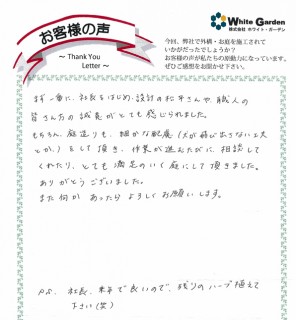 お客様の声
～ Thank You
Letter ～
White Garden
株式会社 ホワイト・ガーデン
今回、弊社で外構・お庭を施工されて
いかがだったでしょうか？
お客様の声が私たちの原動力になっています。
ぜひご感想をお聞かせ下さい。
まず一番に、社長をはじめ、設計の松平さんや、職人の
皆さん方の誠実がとても感じられました。
もちろん、庭造りも、細かな配慮（犬が飛び出さない工夫
とか。）をして頂き、作業が進むたびに、相談して
くれたり、とても満足のいく庭にして頂きました。
ありがとうございました。
また何かあったらよろしくお願いします。
P.S. 社長、来年で良いので、残りのハーブ植えて
下さい（笑）